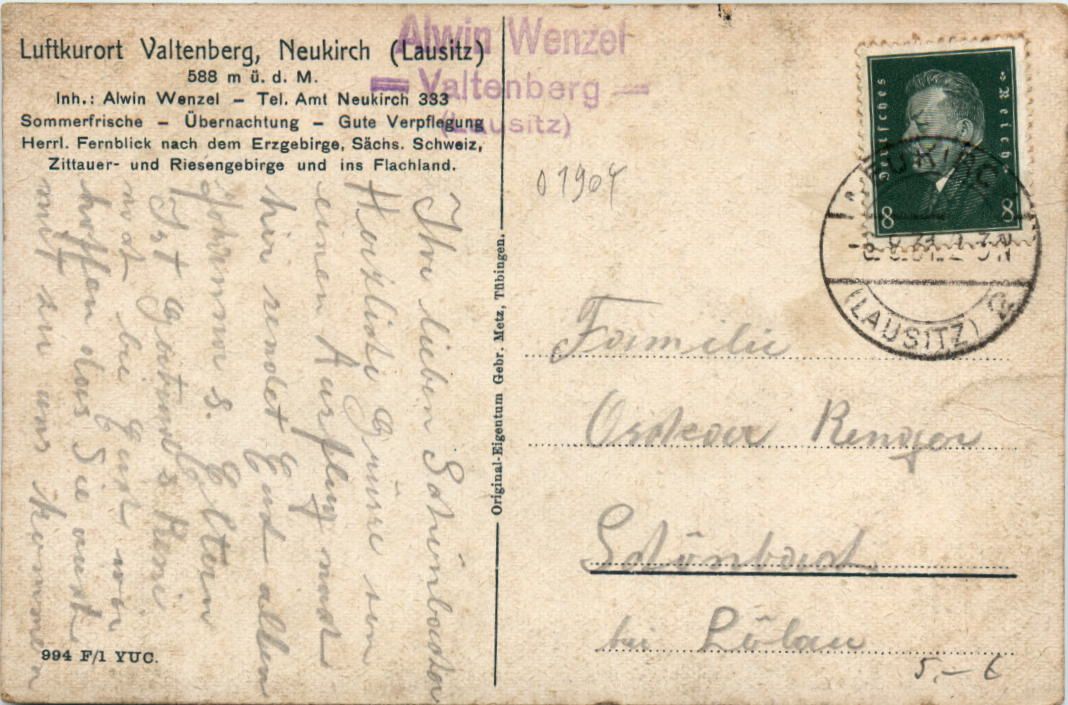 Luftkurort Valtenberg, Neukirch (Lausitz)
588 m ü. d. M.
Inh.: Alwin Wenzel – Tel. Amt Neukirch 333
Sommerfrische – Übernachtung – Gute Verpflegung
Herrl. Fernblick nach dem Erzgebirge, Sächs. Schweiz,
Zittauer- und Riesengebirge und ins Flachland.
Alwin Wenzel
Valtenberg
(Lausitz)
Ihr lieben Schönbacher
Herzliche Grüsse von
einem Ausflug nach
hier sendet Euch allen
s. Eltern
Ist
noch bei Euch wir
hoffen das Sie auch
mit zu uns kommen
994 F/1 YUC.
Original-Eigentum Gebr. Metz, Tübingen.
01904
Deutsches Reich
8 8
(LAUSITZ)
Familie
Schönbach
bei Löbau
5,– 6